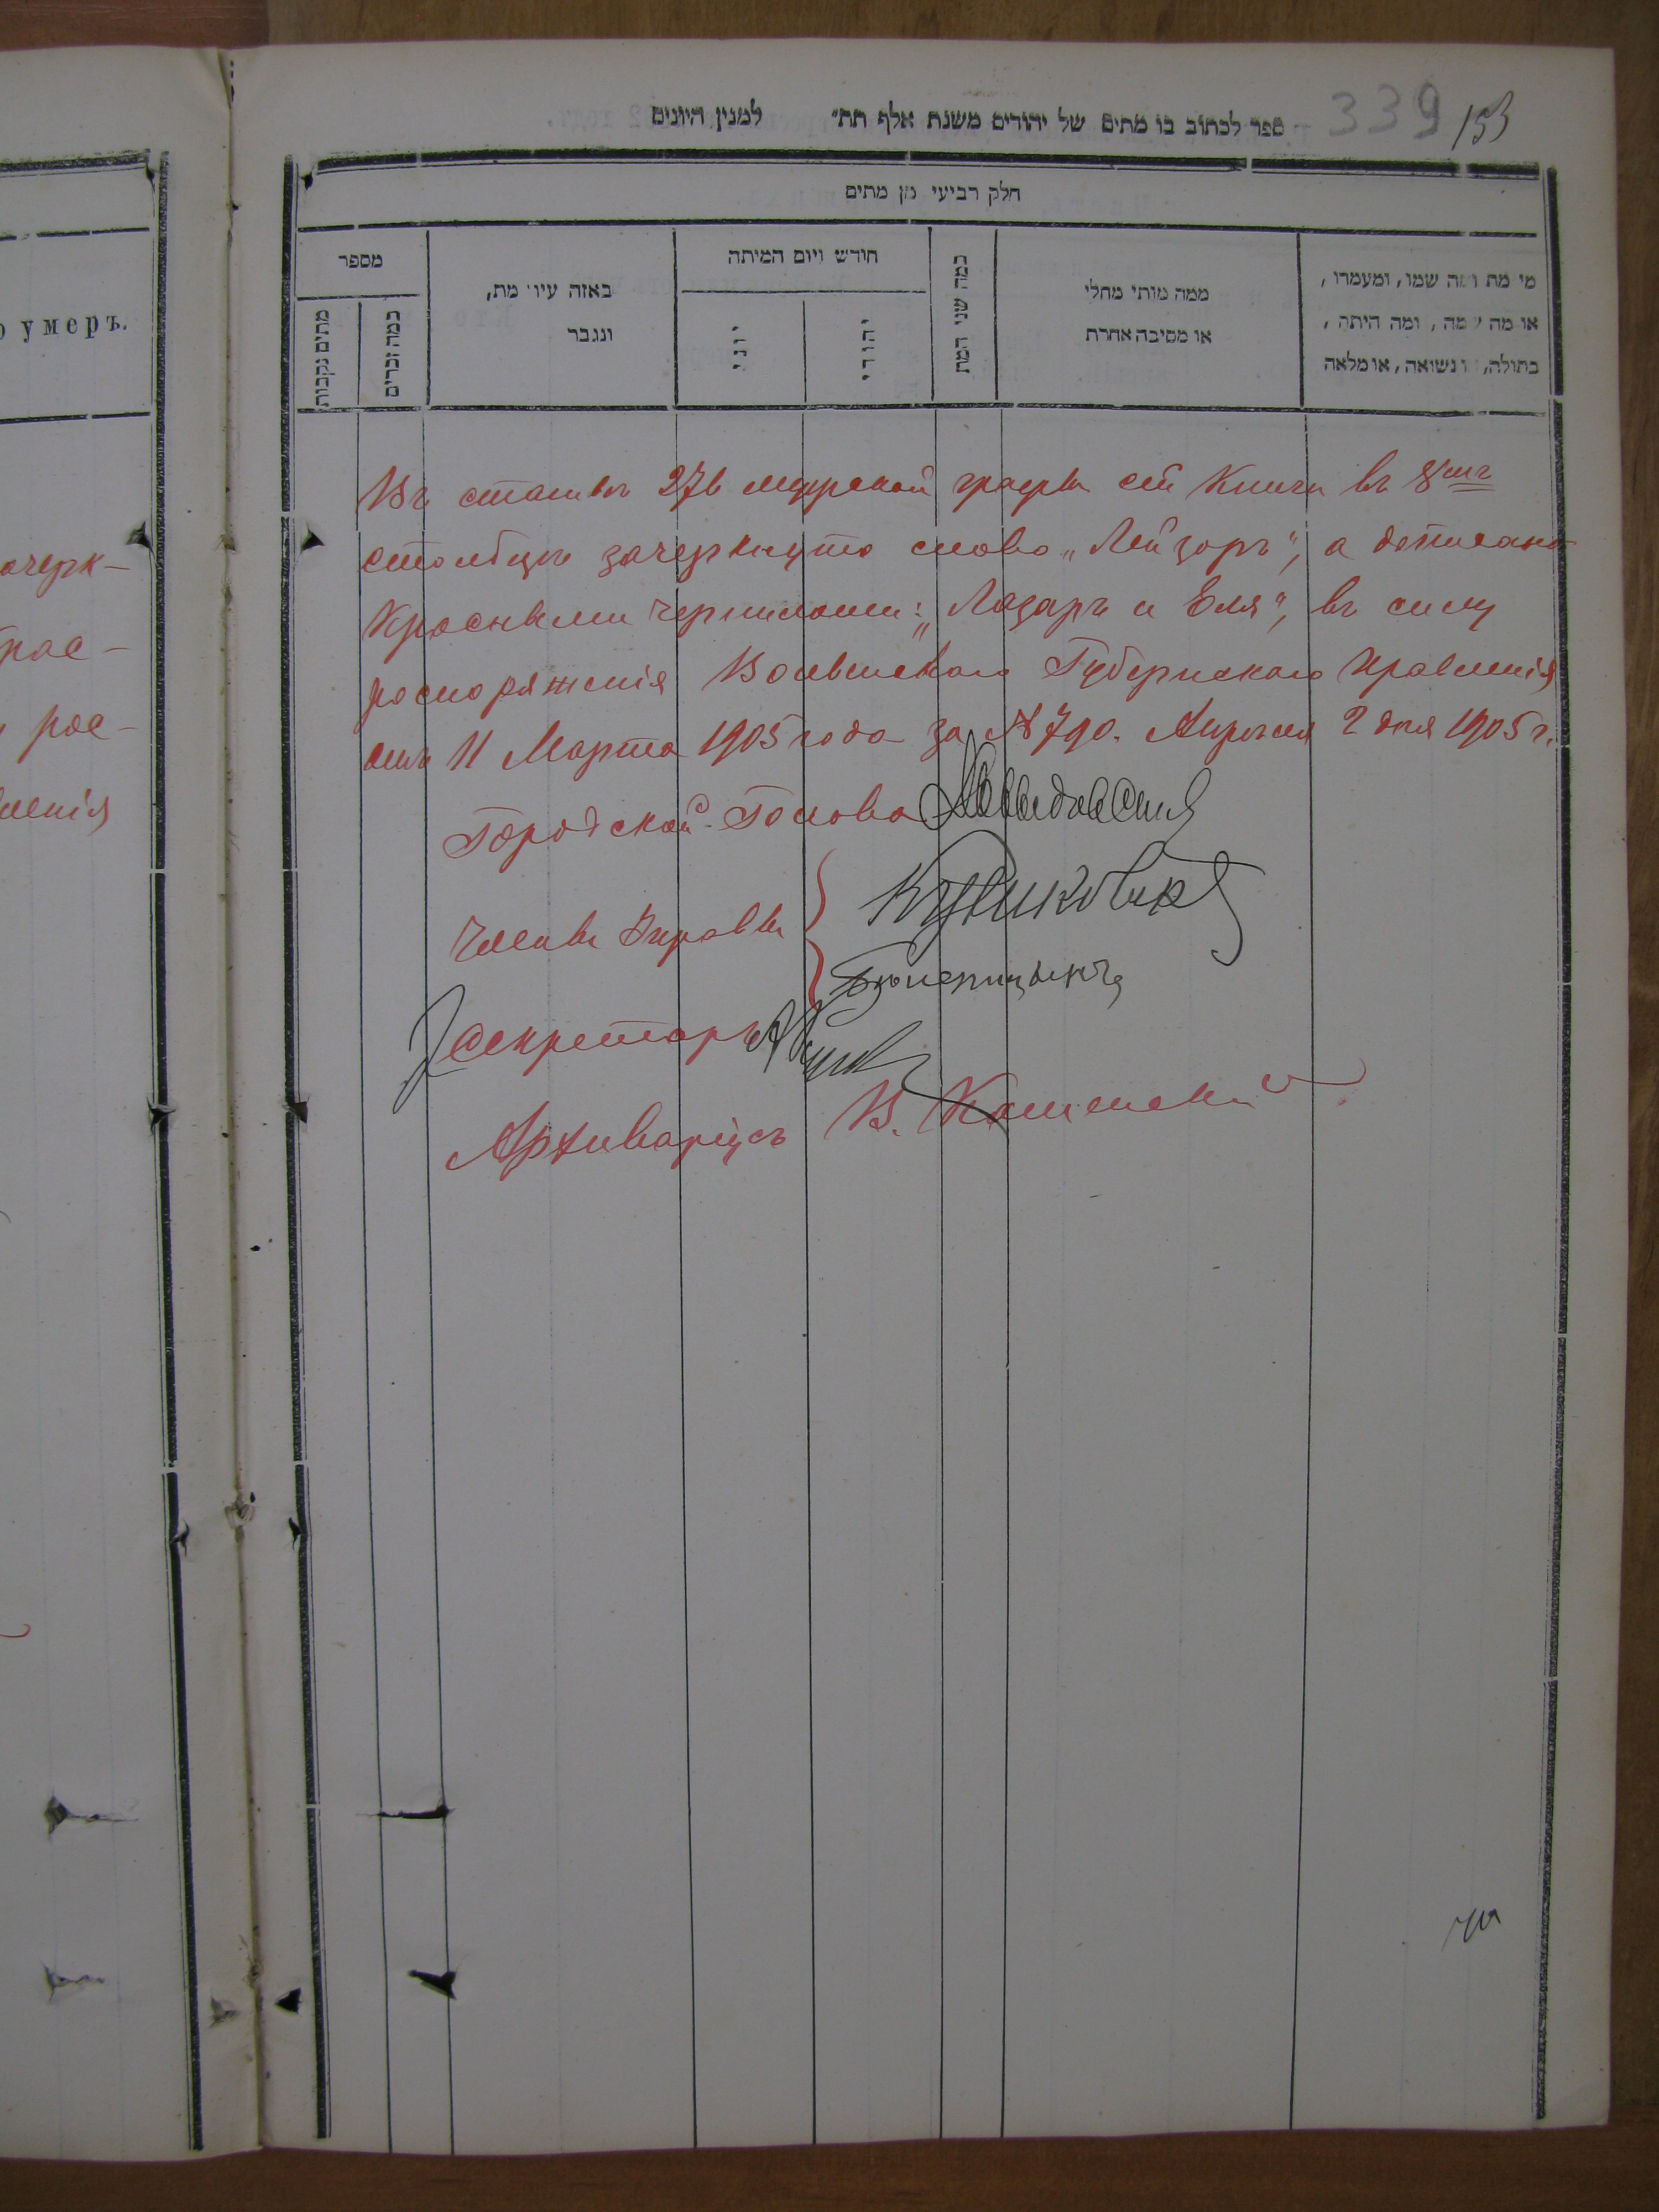 339 153
ספר לכתוב בו מתים של יהודים משנת אלף תת״ למנין היונים
חלק רביעי מן מתים
מי מת ומה שמו, ומעמרו,
או מה שמה, ומה היתה,
בתולה, או נשואה, או מלאה
ממה מותי מחלי
או מסיבה אחרת
כמה שני המת
חודש ויום המיתה
יהודי
יוני
באזה עיר מת,
ונגבר
מספר
כמה זכרים
מתים נקבות
Въ статьѣ 276 мужской графы сей книги въ 8мъ
столбцѣ зачеркнуто слово „Лейзоръ", а дописано
красными чернилами: „Лазарь и Еля", въ силу
распоряженія Волынскаго Губернскаго Правленія
отъ 11 Марта 1905 года за № 790. Апрѣля 2 дня 1905 г.
Городской Голова
Члены Управы
Секретарь
Архиваріусъ В.
о умеръ.
ачерк-
рас-
рос-
ленія